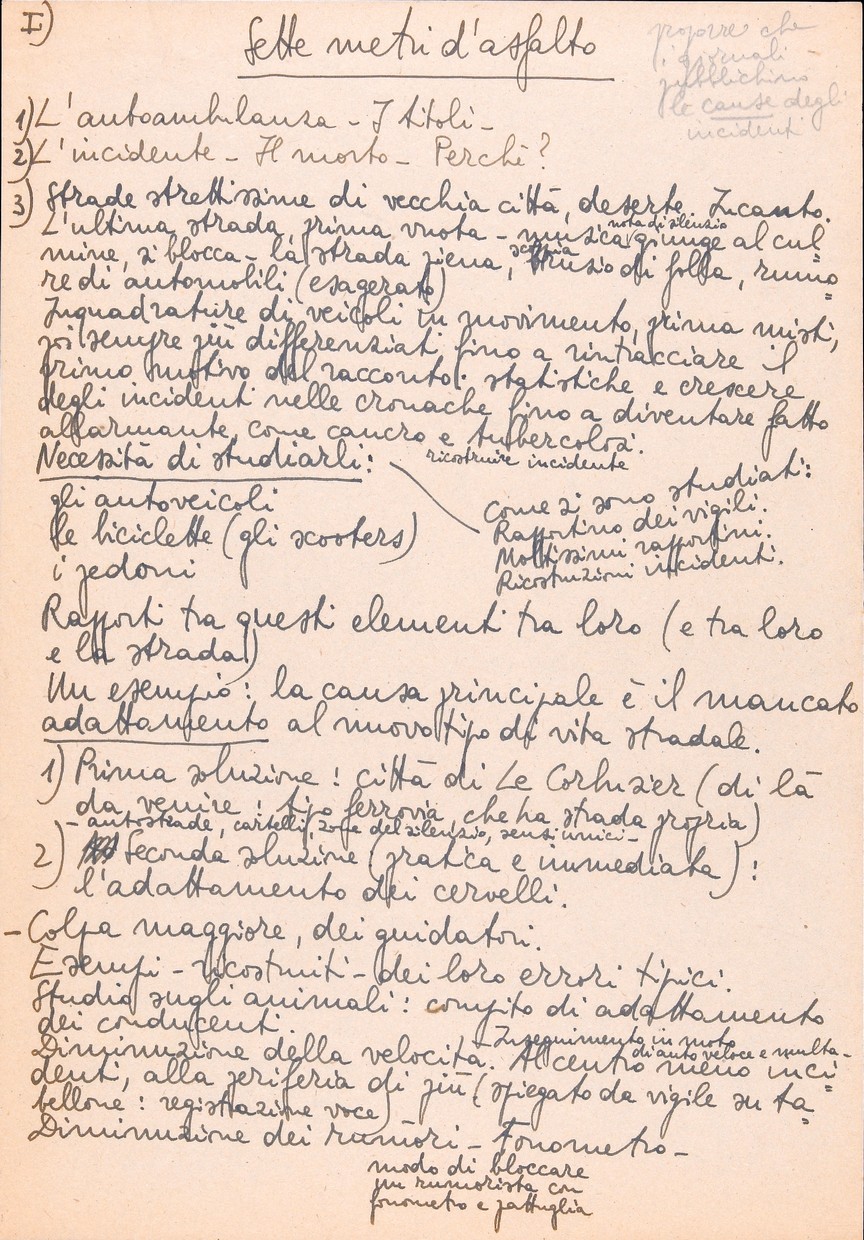 I)
Sette metri d'asfalto
proporre che
i giornali -
pubblichino
le cause degli
incidenti
1) L'autoambulanza - I titoli -
2) L'incidente - Il morto - Perchè?
3) Strade strettissime di vecchia città, deserte. Incanto.
L'ultima strada prima vuota - musica giunge al cul=
nota di silenzio
mine, si blocca - la strada piena, brusio di folla, rumo=
scoppia
re di automobili (esagerato)
Inquadrature di veicoli in movimento, prima misti,
poi sempre più differenziati fino a rintracciare il
primo motivo del racconto: statistiche e crescere
degli incidenti nelle cronache fino a diventare fatto
allarmante, come cancro e tubercolosi.
Necessità di studiarli:
ricostruire incidente
gli autoveicoli
le biciclette (gli scooters)
i pedoni
Come si sono studiati:
Rapportino dei vigili.
Moltissimi rapportini.
Ricostruzioni incidenti.
Rapporti tra questi elementi tra loro (e tra loro
e la strada)
Un esempio: la causa principale è il mancato
adattamento al nuovo tipo di vita stradale.
1) Prima soluzione: città di Le Corbusier (di là
da venire: tipo ferrovia, che ha strada propria)
- autostrade, cartelli, zone del silenzio, sensi unici -
2) Seconda soluzione (pratica e immediata):
l'adattamento dei cervelli.
- Colpa maggiore, dei guidatori.
Esempi - ricostruiti - dei loro errori tipici.
Studio sugli animali: compito di adattamento
dei conducenti.
- Inseguimento in moto
di auto veloce e multa -
Diminuzione della velocità. Al centro meno inci=
denti, alla periferia di più (spiegato da vigile su ta=
bellone: registrazione voce)
Diminuzione dei rumori - Fonometro -
modo di bloccare
un rumorista con
fonometro e pattuglia